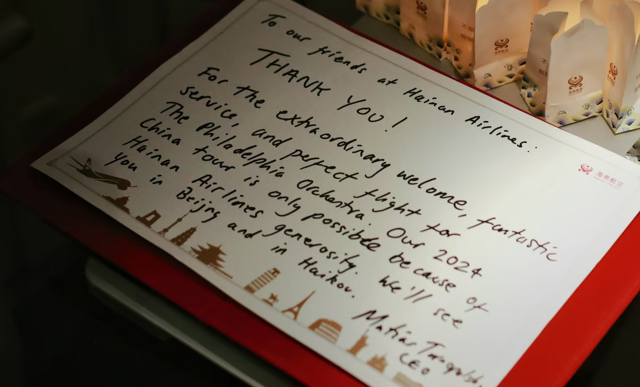 To our friends at Hainan Airlines:
THANK YOU!
For the extraordinary welcome, fantastic
service and perfect flight for
The Philadelphia Orchestra. Our 2024
China tour is only possible because of
Hainan Airlines generosity. We'll see
you in Beijing and in Haikou.
Matías Tarnopolsky
CEO
海南航空